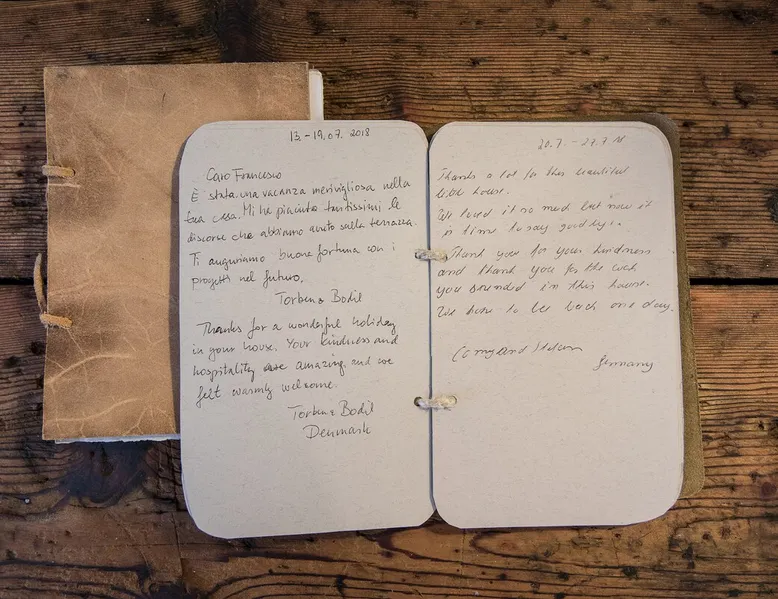 13.-19.07. 2018
Caro Francesco
È stata una vacanza merivigliosa nella
tua casa. Mi ha piaciuto tantissimi le
discorse che abbiamo avuto sulla terrazza.
Ti auguriamo buona fortuna con i
progetti nel futuro.
Torben & Bodil
Thanks for a wonderful holiday
in your house. Your kindness and
hospitality are amazing and we
felt warmly welcome.
Torben & Bodil
Denmark
20.7. - 27.7.18
Thanks a lot for this beautiful
little house.
We loved it so much but now it
is time to say goodbye.
Thank you for your kindness
and thank you for the
you in this house.
We hope to be back one day.
and
Germany